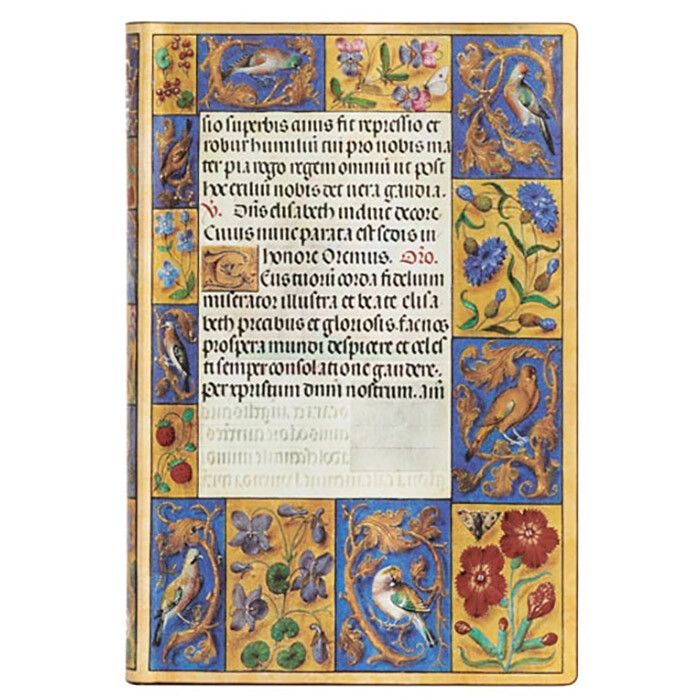 sio superbis cuius fit repressio et
robur humiliū tui pro nobis ma
ter pia rogo regem omniū ut post
hoc exiliū nobis det vera gaudia.
V. Ora elisabeth in divic decore
Cuius nunc parata est sedis in
honore Oremus. Oro.
Eus tuorū corda fidelium
miserator illustra et beate elisa
beth precibus et gloriosis. fac nos
prospera mundi despicere et celes
ti semper consolatione gaudere.
Per xpristum dnm̄ nostrum. am̄